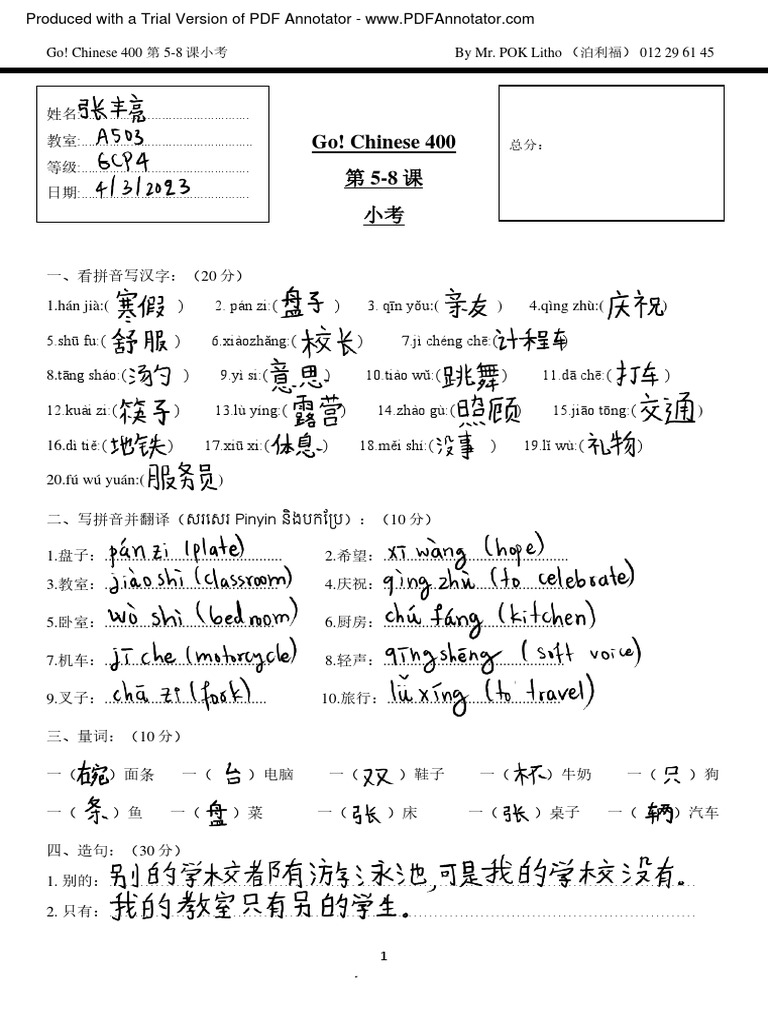 Produced with a Trial Version of PDF Annotator - www.PDFAnnotator.com
Go! Chinese 400 第 5-8 课小考 By Mr. POK Litho （泊利福） 012 29 61 45
姓名:张丰亮
教室: A503
等级: GCP4
日期: 4/3/2023
Go! Chinese 400
第 5-8 课
小考
总分:
一、看拼音写汉字: （20 分）
1.hán jià:( 寒假 ) 2. pán zi:( 盘子 ) 3. qīn yǒu:( 亲友 ) 4.qìng zhù:( 庆祝 )
5.shū fu:( 舒服 ) 6.xiàozhǎng:( 校长 ) 7.jì chéng chē:( 计程车 )
8.tāng sháo:( 汤勺 ) 9.yì si:( 意思 ) 10.tiáo wǔ:( 跳舞 ) 11.dā chē:( 打车 )
12.kuài zi:( 筷子 ) 13.lù yíng:( 露营 ) 14.zhào gù:( 照顾 ) 15.jiāo tōng:( 交通 )
16.dì tiě:( 地铁 ) 17.xiū xi:( 休息 ) 18.měi shi:( 没事 ) 19.lǐ wù:( 礼物 )
20.fú wú yuán:( 服务员 )
二、写拼音并翻译（សរសេរ Pinyin និងបកប្រែ）: （10 分）
1.盘子: pán zi (plate) 2.希望: xī wàng (hope)
3.教室: jiào shì (classroom) 4.庆祝: qìng zhù (to celebrate)
5.卧室: wò shì (bedroom) 6.厨房: chú fáng (kitchen)
7.机车: jī che (motorcycle) 8.轻声: qīng shēng (soft voice)
9.叉子: chā zi (fork) 10.旅行: lǚ xíng (to travel)
三、量词: （10 分）
一（ 碗 ）面条 一（ 台 ）电脑 一（ 双 ）鞋子 一（ 杯 ）牛奶 一（ 只 ）狗
一（ 条 ）鱼 一（ 盘 ）菜 一（ 张 ）床 一（ 张 ）桌子 一（ 辆 ）汽车
四、造句: （30 分）
1. 别的: 别的学校都有游泳池,可是我的学校没有。
2. 只有: 我的教室只有男的学生。
1